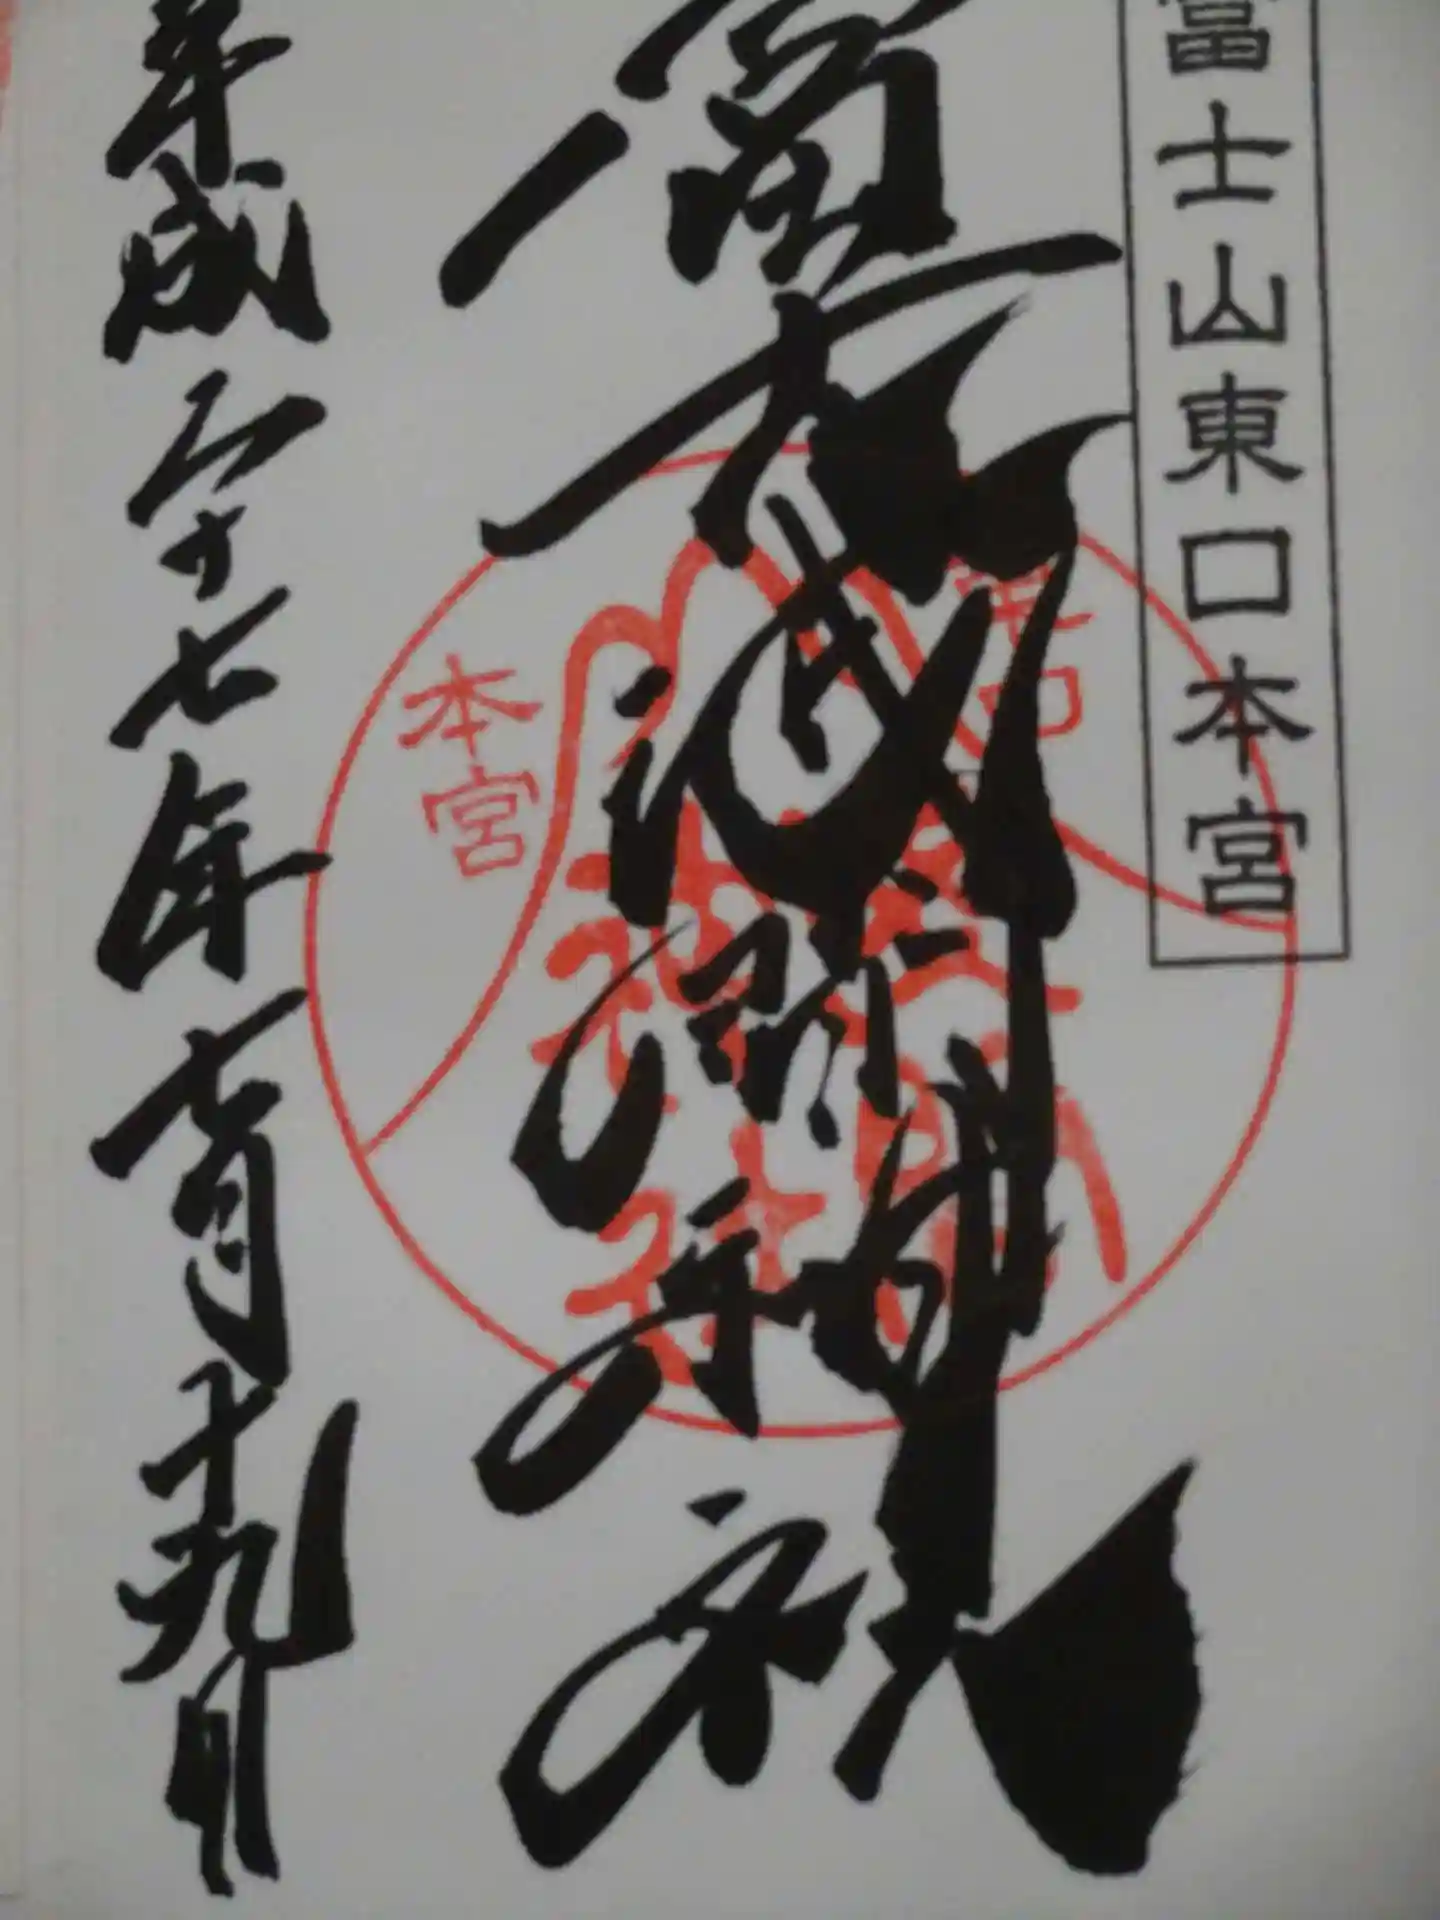 富士山東口本宮
冨士浅間神社
本宮
平成二十七年十一月十九日